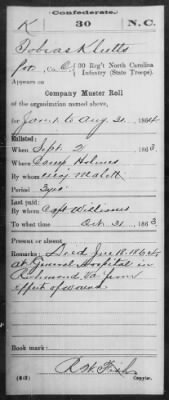 Confederate.
K 30 N.C.
Tobias Klutts
Pvt, Co. C, 30 Reg't North Carolina
Infantry (State Troops).
Appears on
Company Muster Roll
of the organization named above,
for Jan. 1 to Aug. 31, 1864
Enlisted:
When Sept. 2, 1863
Where Camp Holmes
By whom Maj Malett
Period 3 yrs
Last paid:
By whom Capt Williams
To what time Oct. 31, 1863
Present or absent
Remarks: Died June 18. 1864
at General Hospital in
Richmond Va from
effect of wound
Book mark:
R W
(642) Copyist.